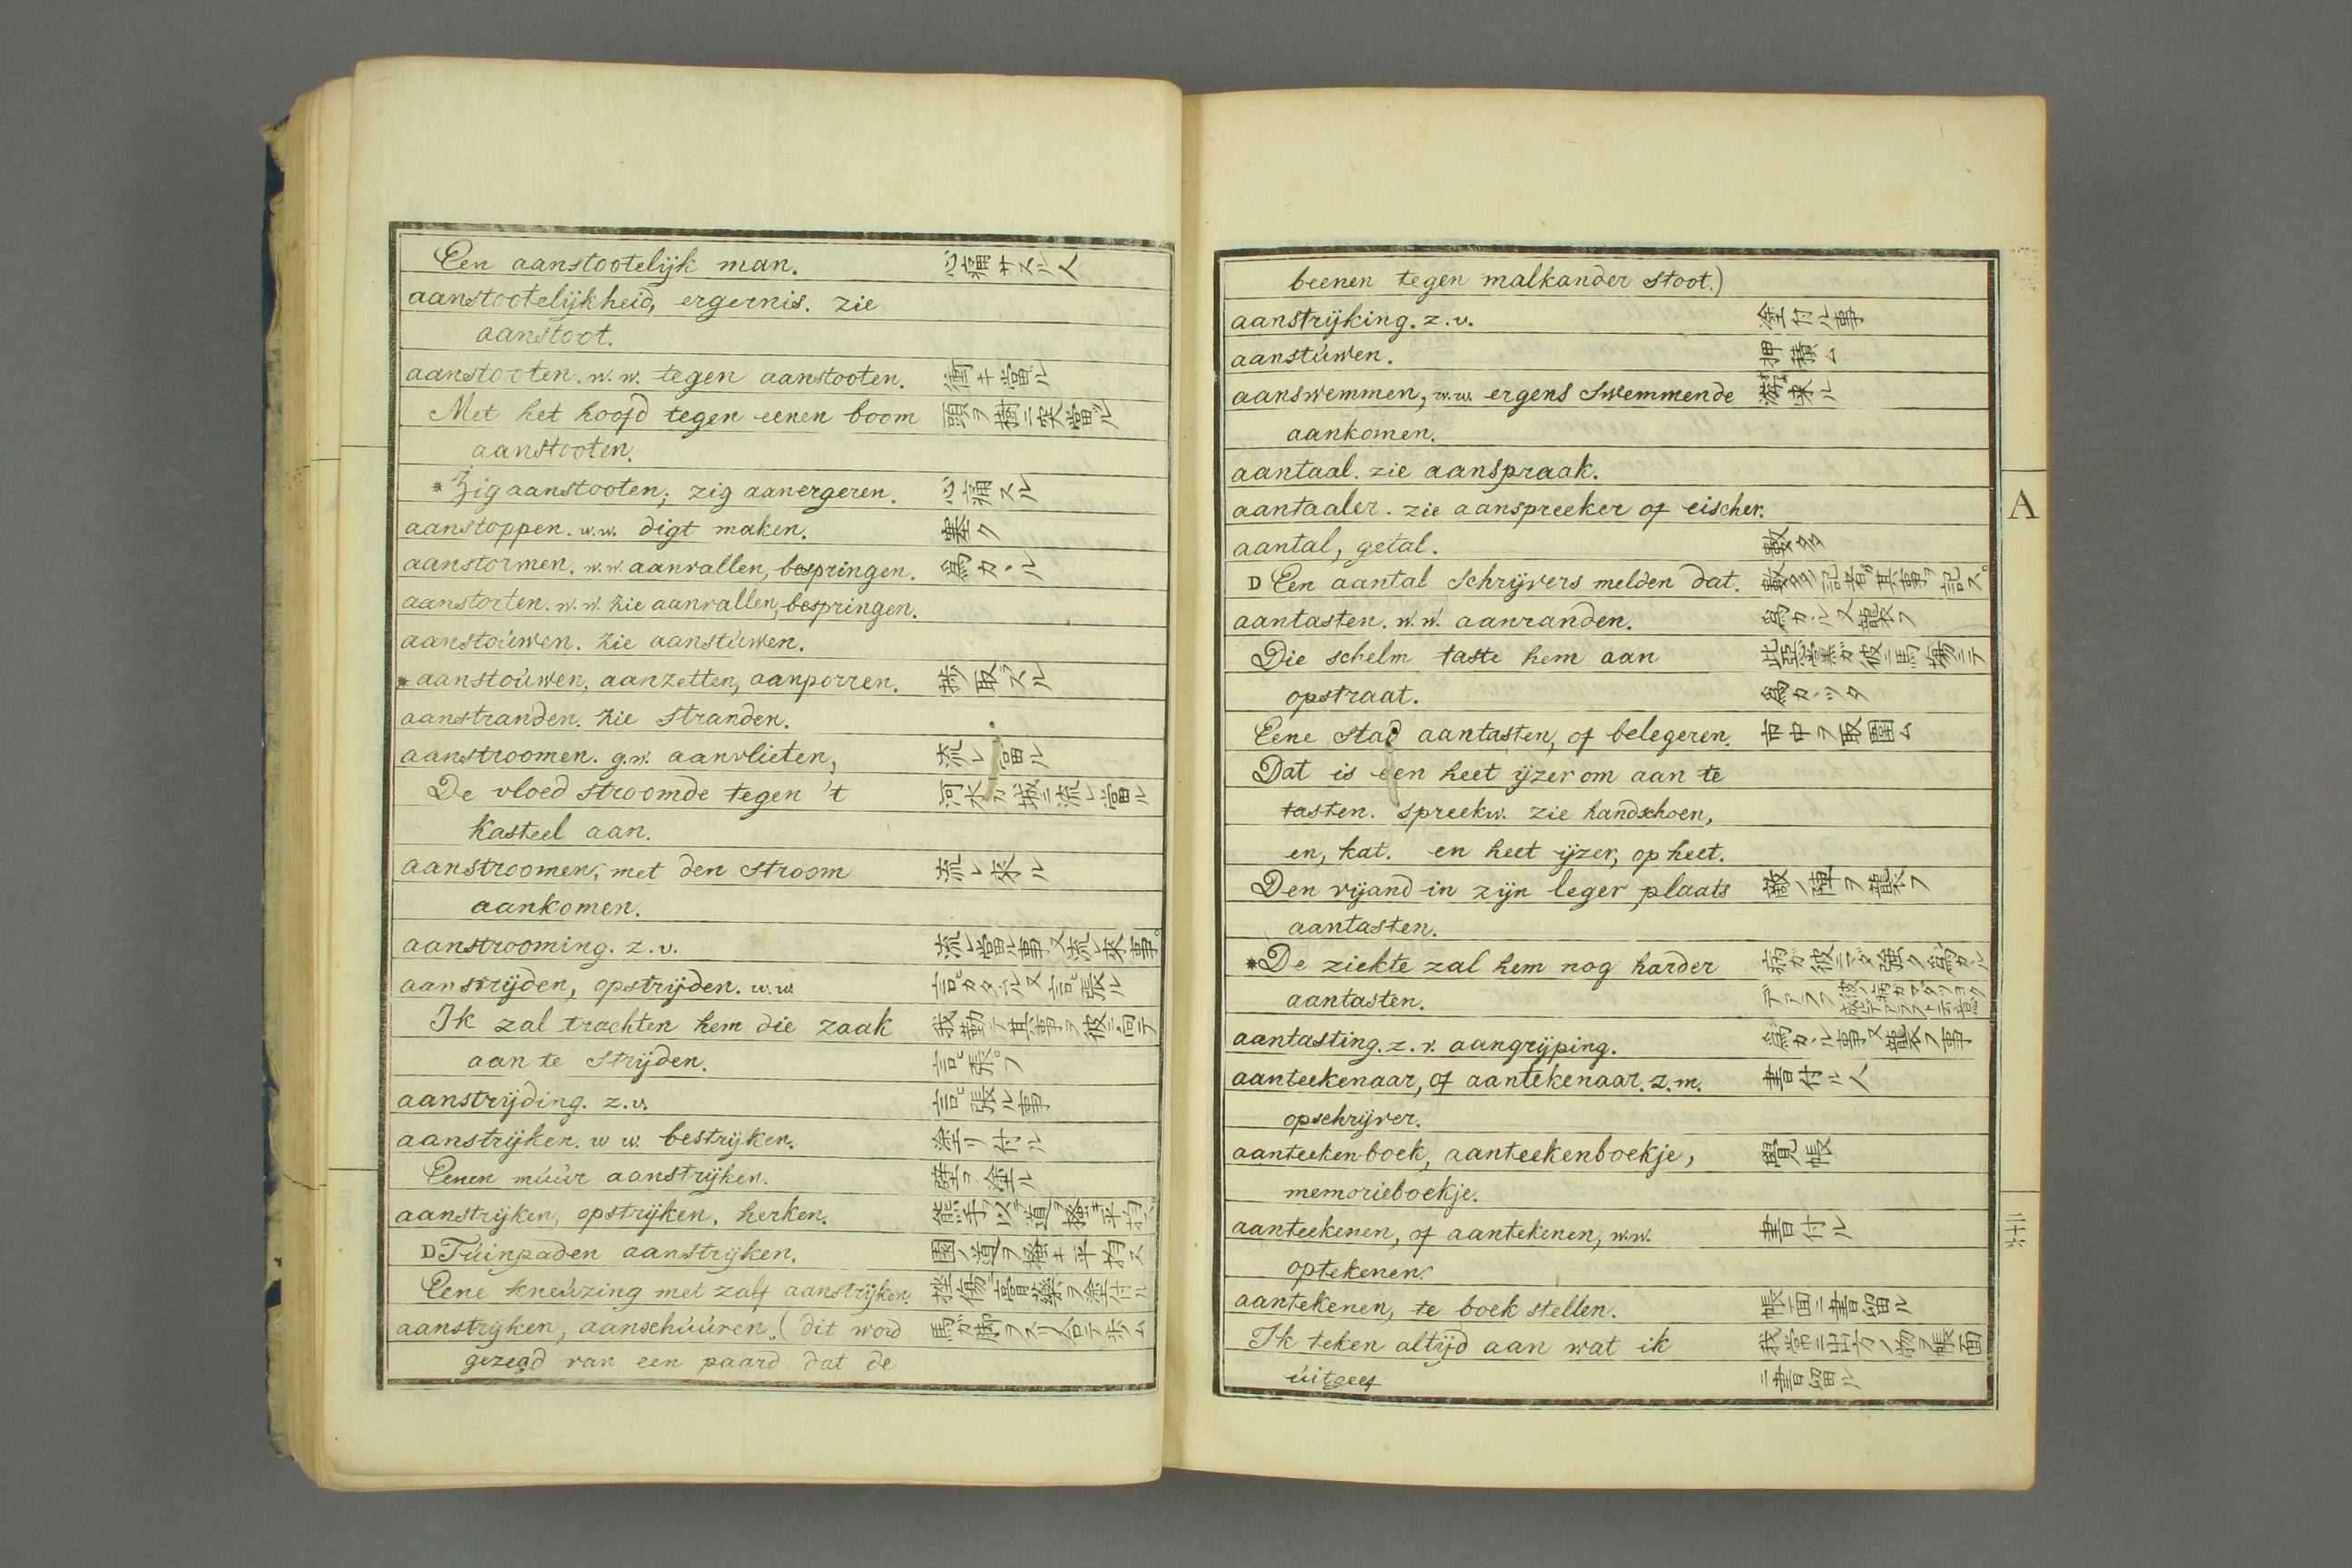 Een aanstootelijk man. 心痛サスル人
aanstootelijkheid, ergernis. zie
aanstoot.
aanstooten. w.w. tegen aanstooten. 衝キ當ル
Met het hoofd tegen eenen boom 頭ヲ樹ニ突當ル
aanstooten.
* Zig aanstooten; zig aanergeren. 心痛スル
aanstoppen. w.w. digt maken. 塞ク
aanstormen. w.w. aanvallen, bespringen.
aanstorten. w.w. zie aanvallen, bespringen.
aanstoúwen. zie aanstúwen.
* aanstoúwen, aanzetten, aanporren.
aanstranden. zie stranden.
aanstroomen. g.w. aanvlieten, 流レ當ル
De vloed stroomde tegen 't 河水ガ城ニ流レ當ル
Kasteel aan.
aanstroomen, met den stroom 流レ來ル
aankomen.
aanstrooming. z.v. 流レ當ル事又流レ來事
aanstrijden, opstrijden. w.w.
Ik zal trachten hem die zaak 我勤テ其事ヲ彼ニ向テ
aan te strijden. 言張
aanstrijding. z.v. 言張ル事
aanstrijken. w w. bestrijken. 塗リ付ル
Eenen múúr aanstrijken. 壁ヲ塗ル
aanstrijken, opstrijken, herken.
D Túinpaden aanstrijken.
Eene kneúzing met zalf aanstrijken.
aanstrijken, aanschúúren. (dit word 馬ガ脚ヲスリ合テ歩ム
gezead van een paard dat de
beenen tegen malkander stoot.)
aanstrijking. z.v. 塗付ル事
aanstúwen. 押積ム
aanswemmen, w.w. ergens swemmende 游來ル
aankomen.
aantaal. zie aanspraak.
aantaaler. zie aanspreeker of eischer.
aantal, getal. 數多
D Een aantal Schrijvers melden dat.
aantasten. w.w. aanranden.
Die schelm taste hem aan
opstraat.
Eene stad aantasten, of belegeren. 市中ヲ取圍ム
Dat is een heet ijzer om aan te
tasten. spreekw. zie handschoen,
en, kat. en heet ijzer, op heet.
Den vijand in zijn leger plaats 敵ノ陣ヲ襲フ
aantasten.
* De ziekte zal hem nog harder
aantasten.
aantasting. z.v. aangrijping.
aanteekenaar, of aantekenaar. z.m. 書付ル人
opschrijver.
aanteeken-boek, aanteekenboekje, 覺帳
memorieboekje.
aanteekenen, of aantekenen, w.w. 書付ル
optekenen.
aantekenen, te boek stellen. 帳面ニ書留ル
Ik teken altijd aan wat ik 我常ニ出方ノ物ヲ帳面
úitgeef ニ書留ル
A